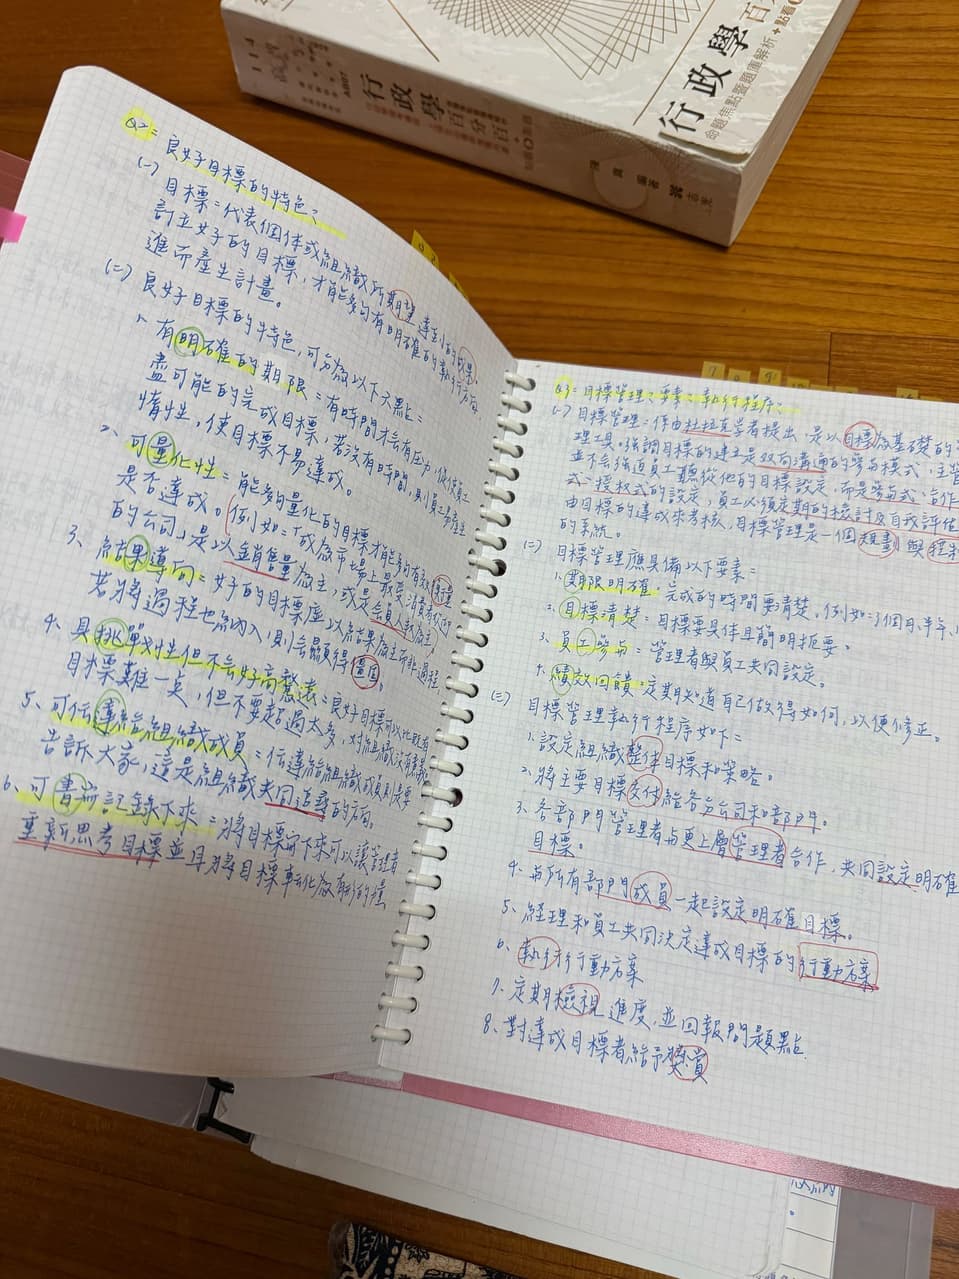 行政學
命題焦點暨題庫解析
行政學百分百
編著
Q2：良好目標的特色？
(一) 目標：代表個體或組織所期望達到的成果，
訂立好的目標，才能夠有明確的執行方向
進而產生計畫。
(二) 良好目標的特色，可分為以下六點：
1、有明確的期限：有時間才會有壓力，促使員工
盡可能的完成目標，若沒有時間，則員工易產生
惰性，使目標不易達成。
2、可量化性：能夠量化的目標才能夠有效
是否達成。例如：「成為市場上最受消費者
的公司」是以銷售量為主，或是會員人數為主。
3、結果導向：好的目標應以結果為主而非過程
若將過程也納入，則會顯得僵固。
4、具挑戰性但不會好高騖遠：良好目標可以比既有
目標難一點，但不要超過太多，對組織沒有
5、可傳達給組織成員：傳達給組織成員則是要
告訴大家，這是組織共同追尋的方向。
6、可書面記錄下來：將目標寫下來可以讓管理者
重新思考目標並且將目標轉化為有形的
Q3：目標管理、要素、執行程序？
(一) 目標管理：係由杜拉克學者提出，是以目標為基礎的
理工具，強調目標的建立是双向溝通的參與模式，主管
並不會強迫員工聽從他的目標設定，而是參與式、合作
式、授权式的設定，員工必須定期的檢討及自我評估
由目標的達成來考核，目標管理是一個規劃與控制
的系統。
(二) 目標管理應具備以下要素：
1、期限明確：完成的時間要清楚，例如：3個月、半年、
2、目標清楚：目標要具体且簡明扼要。
3、員工參与：管理者與員工共同設定。
4、績效回饋：定期知道自己做得如何，以便修正。
(三) 目標管理執行程序如下：
1、設定組織整体目標和策略。
2、將主要目標交付給各分公司和部門。
3、各部門管理者与更上層管理者合作，共同設定明確
目標。
4、与所有部門成員一起設定明確目標。
5、經理和員工共同決定達成目標的行動方案
6、執行行動方案
7、定期檢視進度，並回報問題點.
8、對達成目標者給予獎賞